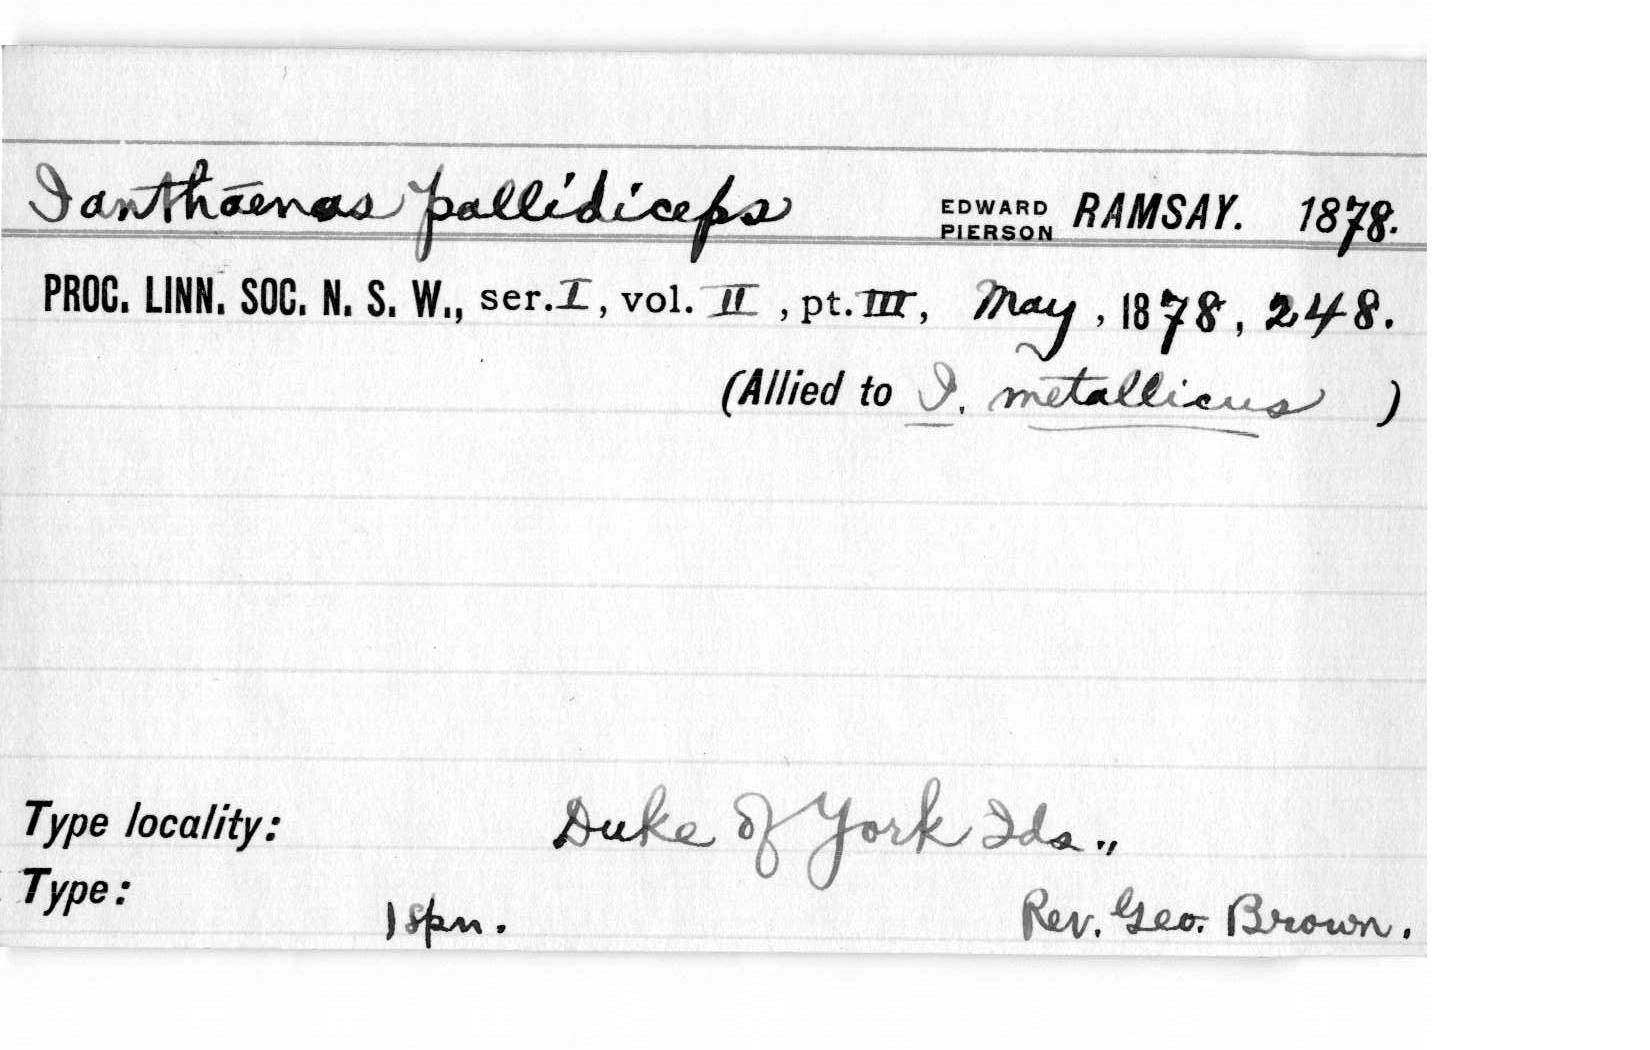 Ianthaenas pallidiceps EDWARD PIERSON RAMSAY. 1878.
PROC. LINN. SOC. N. S. W., ser. I, vol. II, pt. III, May, 1878, 248.
(Allied to I. metallicus )
Type locality: Duke of York Ids.,
Type: 1 spn. Rev. Geo. Brown.